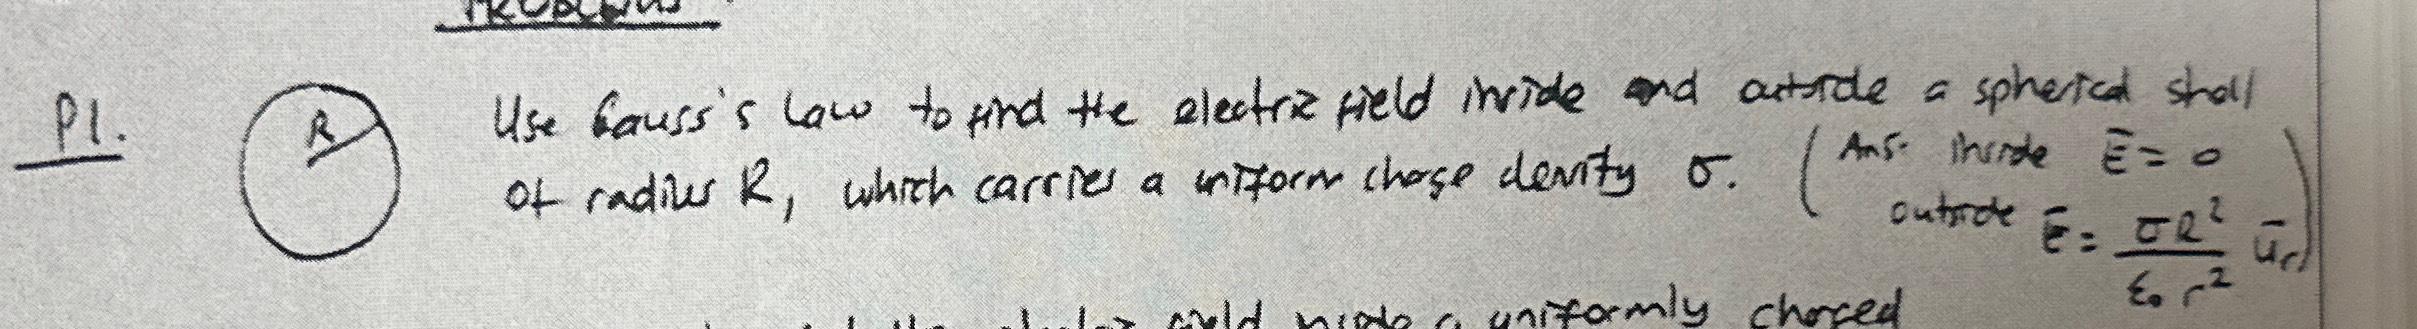 PROBLEMS
P1.
R
Use Gauss's Law to find the electric field inside and outside a spherical shell
of radius R, which carries a uniform charge density σ. (Ans. inside Ē = 0
outside Ē = σR² / ε₀ r² ūᵣ)
field inside a uniformly charged